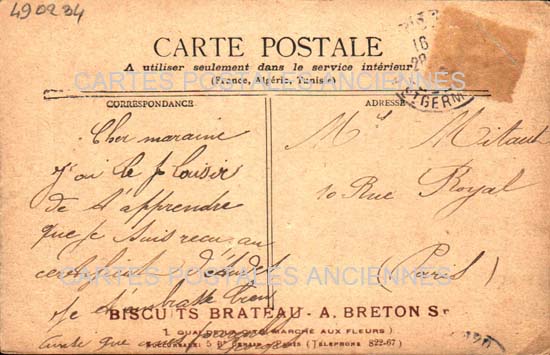 490234
CARTE POSTALE
A utiliser seulement dans le service intérieur
(France, Algérie, Tunisie)
CARTES POSTALES ANCIENNES
CORRESPONDANCE
ADRESSE
16
ST GERM
Cher maraine
J'ai le plaisir
de t'apprendre
que je suis recu au
certificat d'étude
Je t'embrasse bien
que
Mr Mitaut
10 Rue Royal
(Paris)
CARTES POSTALES ANCIENNES
BISCUITS BRATEAU - A. BRETON Sr
MARCHÉ AUX FLEURS)
(TÉLÉPHONE 822-67)